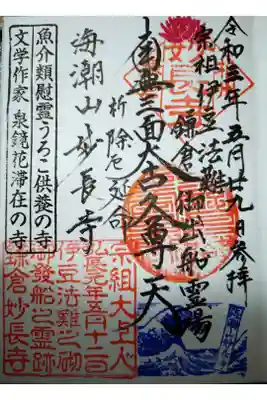 令和三年五月廿九日参拝
宗祖伊豆法難
鎌倉御出船霊場
南無三面大古久尊天
祈除厄延命
海潮山妙長寺
魚介類慰霊うろこ供養の寺
文学作家 泉鏡花滞在の寺
宗祖大上人
弘長元年五月十二日
伊豆法難之砌
御発船之霊跡
鎌倉妙長寺